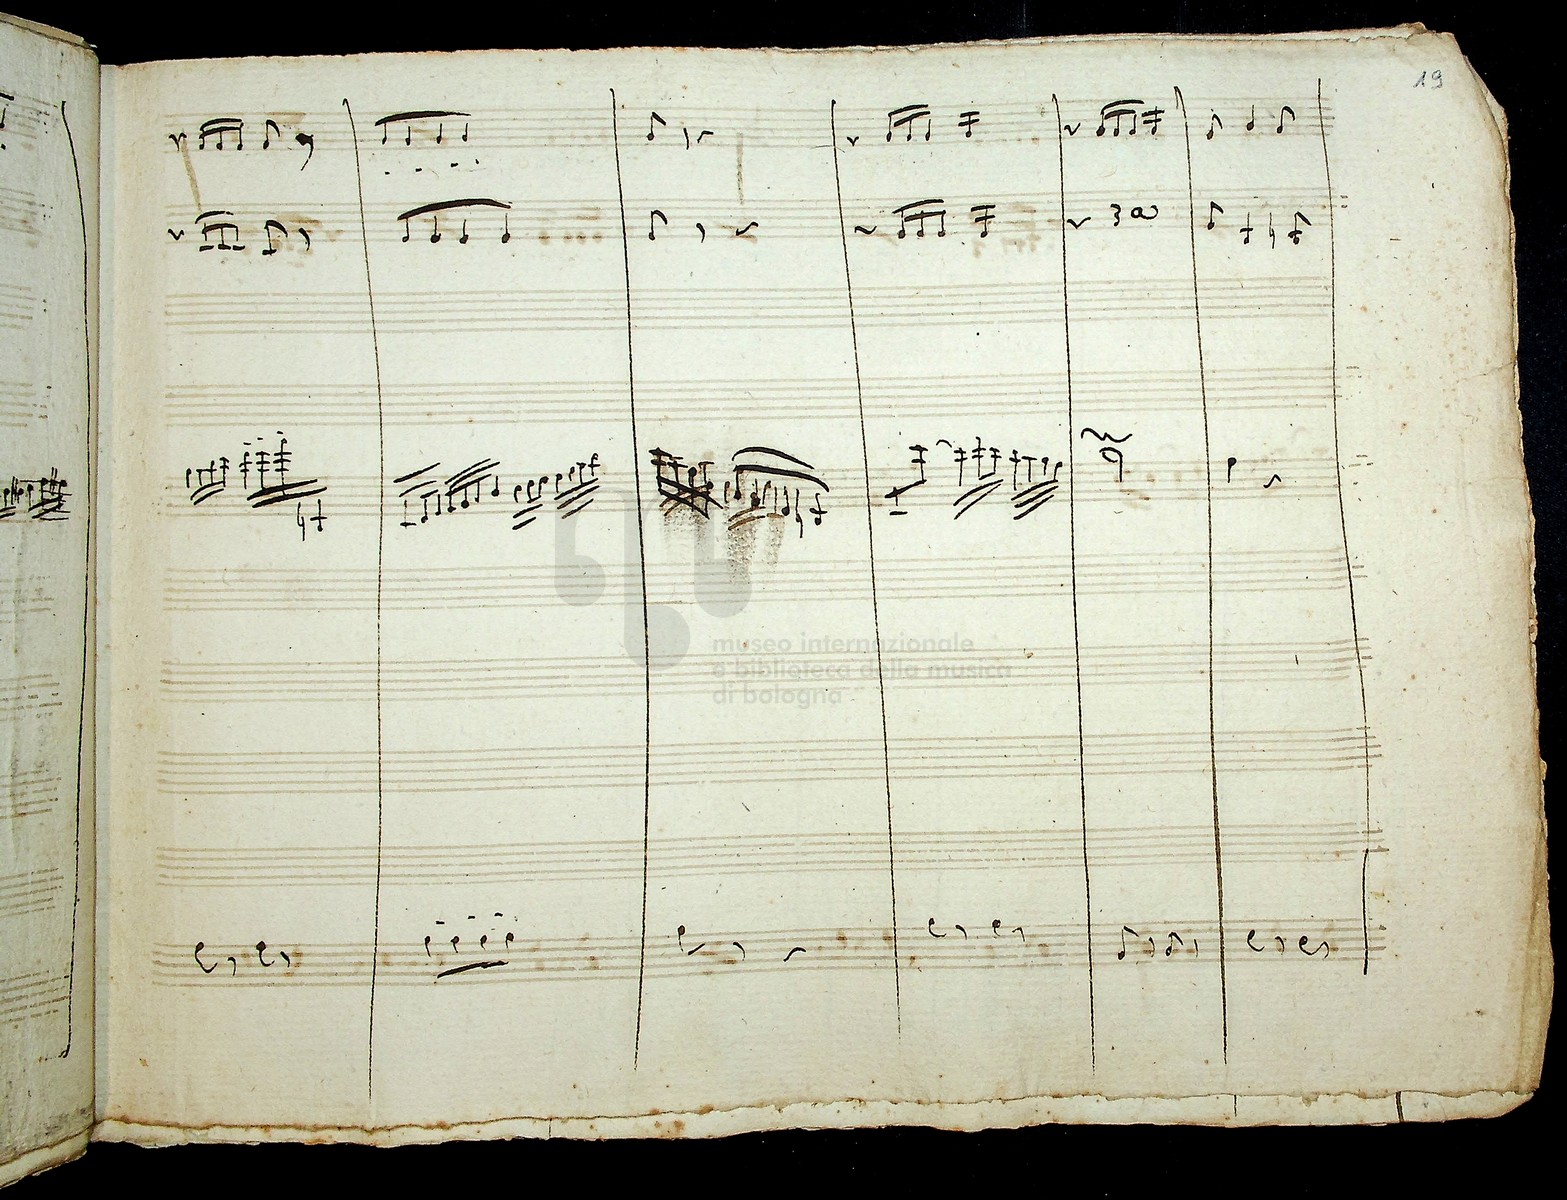 19
museo internazionale
e biblioteca della musica
di bologna